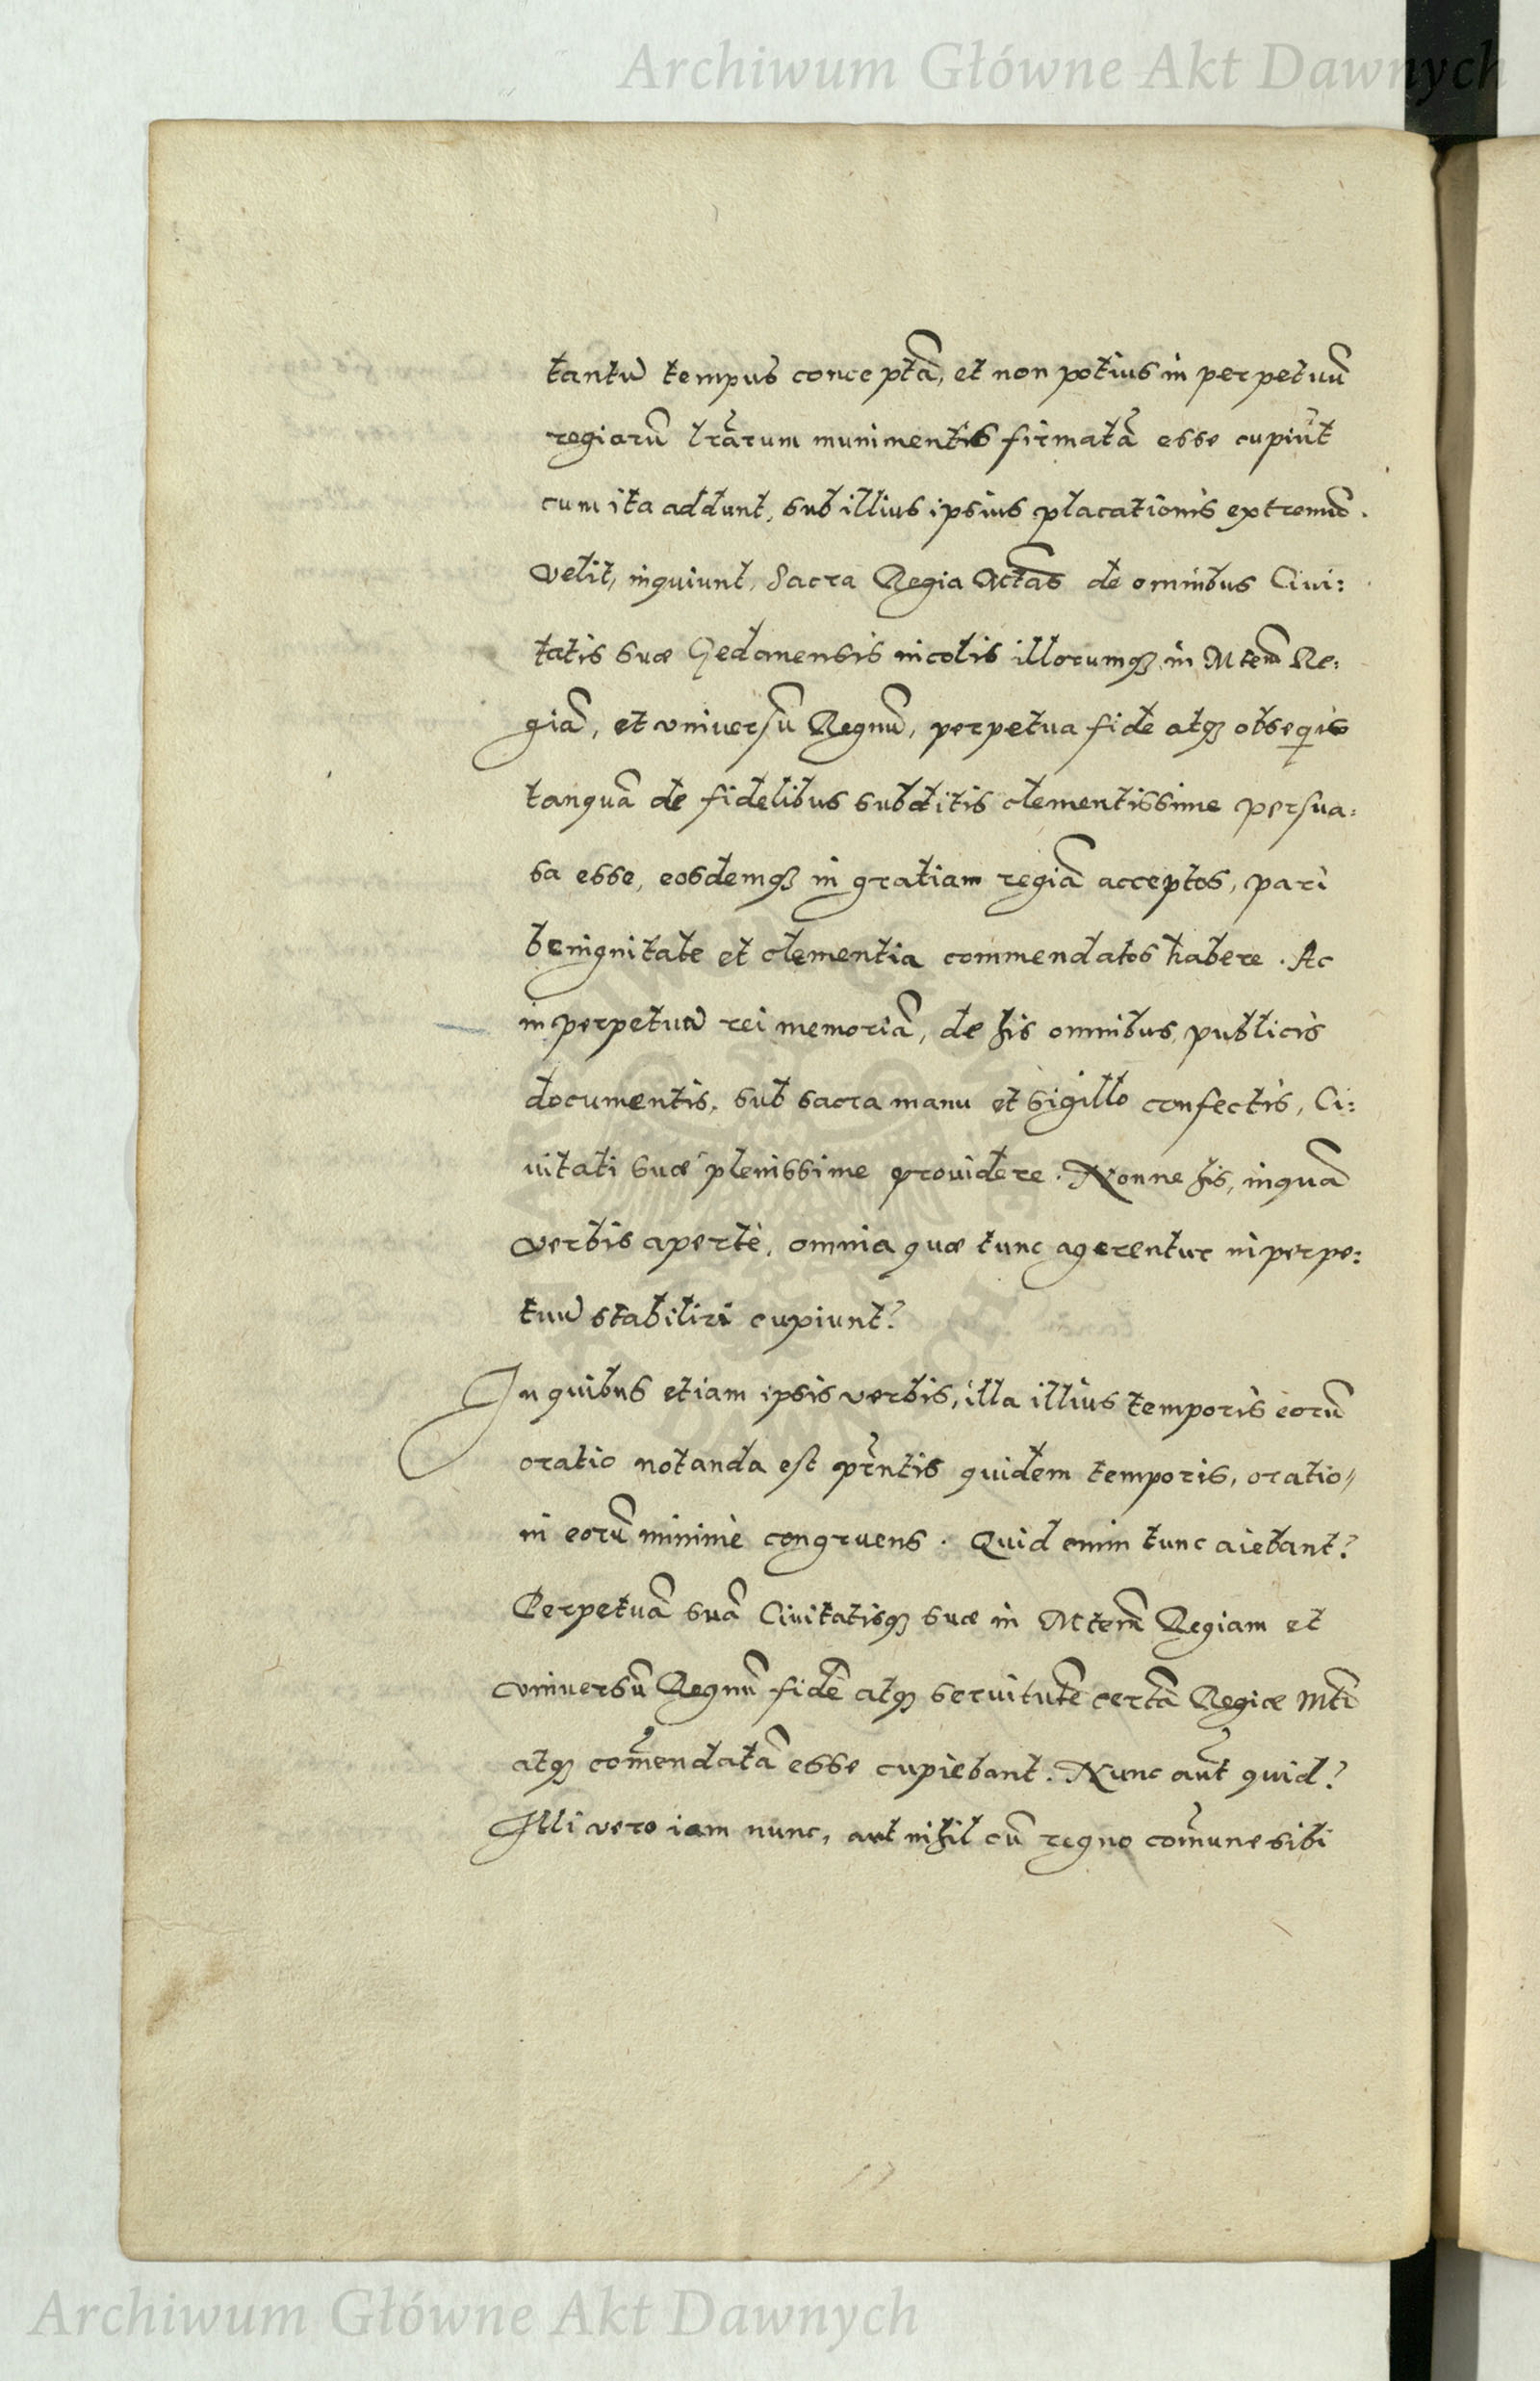 Archiwum Główne Akt Dawnych
tantũ tempus conceptã, et non potius in perpetuũ
regiarũ lr̃arum munimentis firmatã esse cupiũt
cum ita addunt, sub illius ipsius placationis extremũ.
Velit, inquiunt, Sacra Regia Mttas de omnibus Ciui:
tatis suæ Gedanensis incolis illorumqȝ in Mtem̃ Re:
giã, et vniuersũ Regnũ, perpetua fide atqȝ obsequio
tanquã de fidelibus subditis clementissime persua:
sa esse, eosdemqȝ in gratiam regiã acceptos, pari
benignitate et clementia commendatos habere. Ac
in perpetuã rei memoriã, de his omnibus, publicis
documentis, sub sacra manu et sigillo confectis, Ci:
uitati suæ plenissime prouidere. Nonne his, inquã
verbis apertè, omnia quæ tunc agerentur in perpe:
tuũ stabiliri cupiunt?
In quibus etiam ipsis verbis, illa illius temporis eorũ
oratio notanda est pr̃ntis quidem temporis, oratio//
ni eorũ minimè congruens. Quid enim tunc aiebant?
Perpetuã suã Ciuitatisqȝ suæ in Mtem̃ Regiam et
vniuersũ Regnũ fidẽ atqȝ seruitutẽ certã Regiæ Mti
atqȝ com̃endatã esse cupiebant. Nunc aũt quid?
Illi vero iam nunc, aut nihil cũ regno com̃une sibi
Archiwum Główne Akt Dawnych